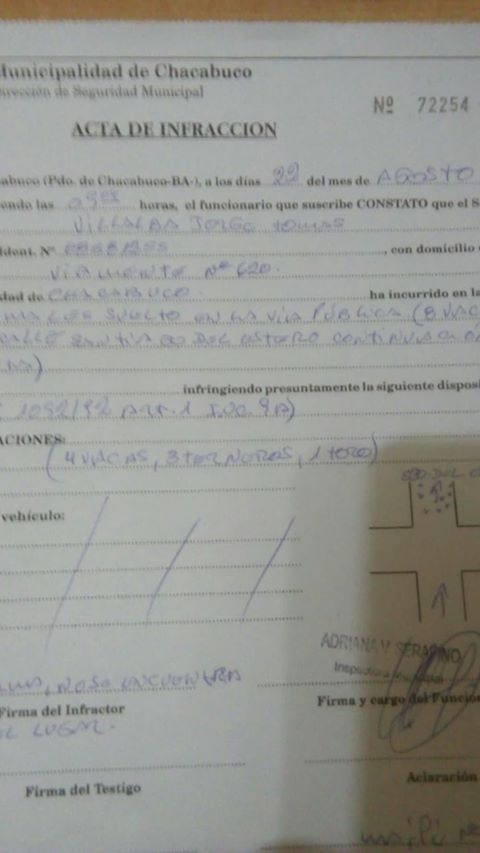 Municipalidad de Chacabuco
Dirección de Seguridad Municipal
Nº 72254
ACTA DE INFRACCION
abuco (Pdo. de Chacabuco-BA-), a los días 22 del mes de AGOSTO
endo las horas, el funcionario que suscribe CONSTATO que el S
VILLALBA JORGE TOMAS
ident. Nº , con domicilio
VIAMONTE Nº 620.
dad de CHACABUCO. ha incurrido en la
MALES SUELTO EN LA VIA PÚBLICA (8 VAC
CALLE SANTIAGO DEL ESTERO CONTINUACION
infringiendo presuntamente la siguiente disposi
1092/92 ART. 1 INC. 9A)
ACIONES:
(4 VACAS, 3 TERNEROS, 1 TORO)
SGO. DEL
vehículo:
ADRIANA V. SERAFINO
Inspectora Municipal
NO SE ENCUENTRA
Firma del Infractor
Firma y cargo del Funcion
EL LUGAR.
Firma del Testigo
Aclaración